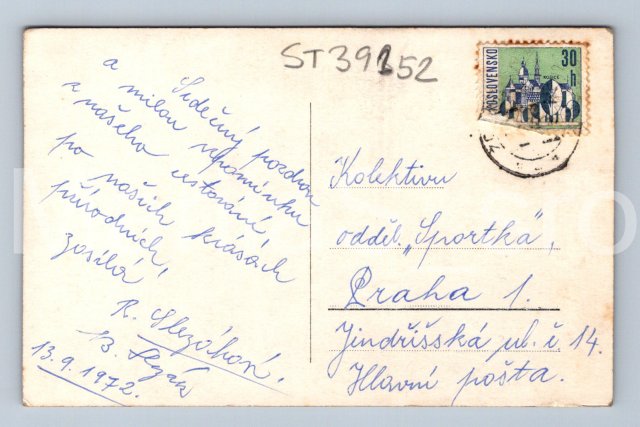 ST 39152
Srdečný pozdrav
a milou vzpomínku
z našeho cestování
po našich krásách
přírodních,
zasílá
R. Slezáková.
B. Slezák
13.9.1972.
ČESKOSLOVENSKO
30 h
KOŠICE
Kolektivu
odděl. „Sportka",
Praha 1.
Jindřišská ul. č. 14.
Hlavní pošta.